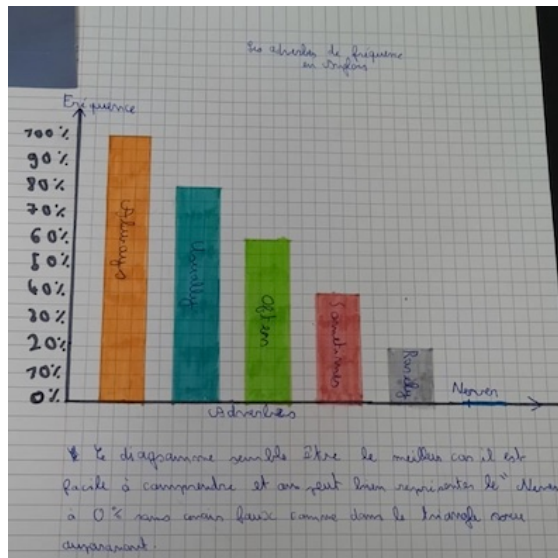 Les adverbes de fréquence
en Anglais
Fréquence
100%
90%
80%
70%
60%
50%
40%
30%
20%
10%
0%
Always
Usually
Often
Sometimes
Rarely
Never
Adverbes
Le diagramme semble être le meilleur car il est
facile à comprendre et on peut bien représenter le "Never
à 0% sans faux comme dans le triangle
auparavant.